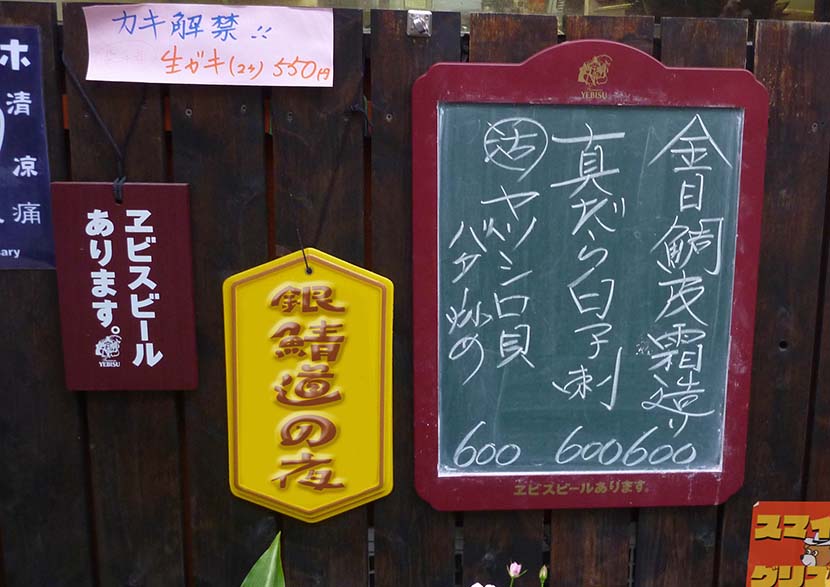 カキ解禁!!
生ガキ(2ケ) 550円
ホ
清
凉
痛
ヱビスビール
あります。
YEBISU
銀鯖道の夜
YEBISU
金目鯛皮霜造り 600
真だら白子刺 600
活 ヤツシロ貝
バター炒め 600
ヱビスビールあります。
スマイ
グリコ